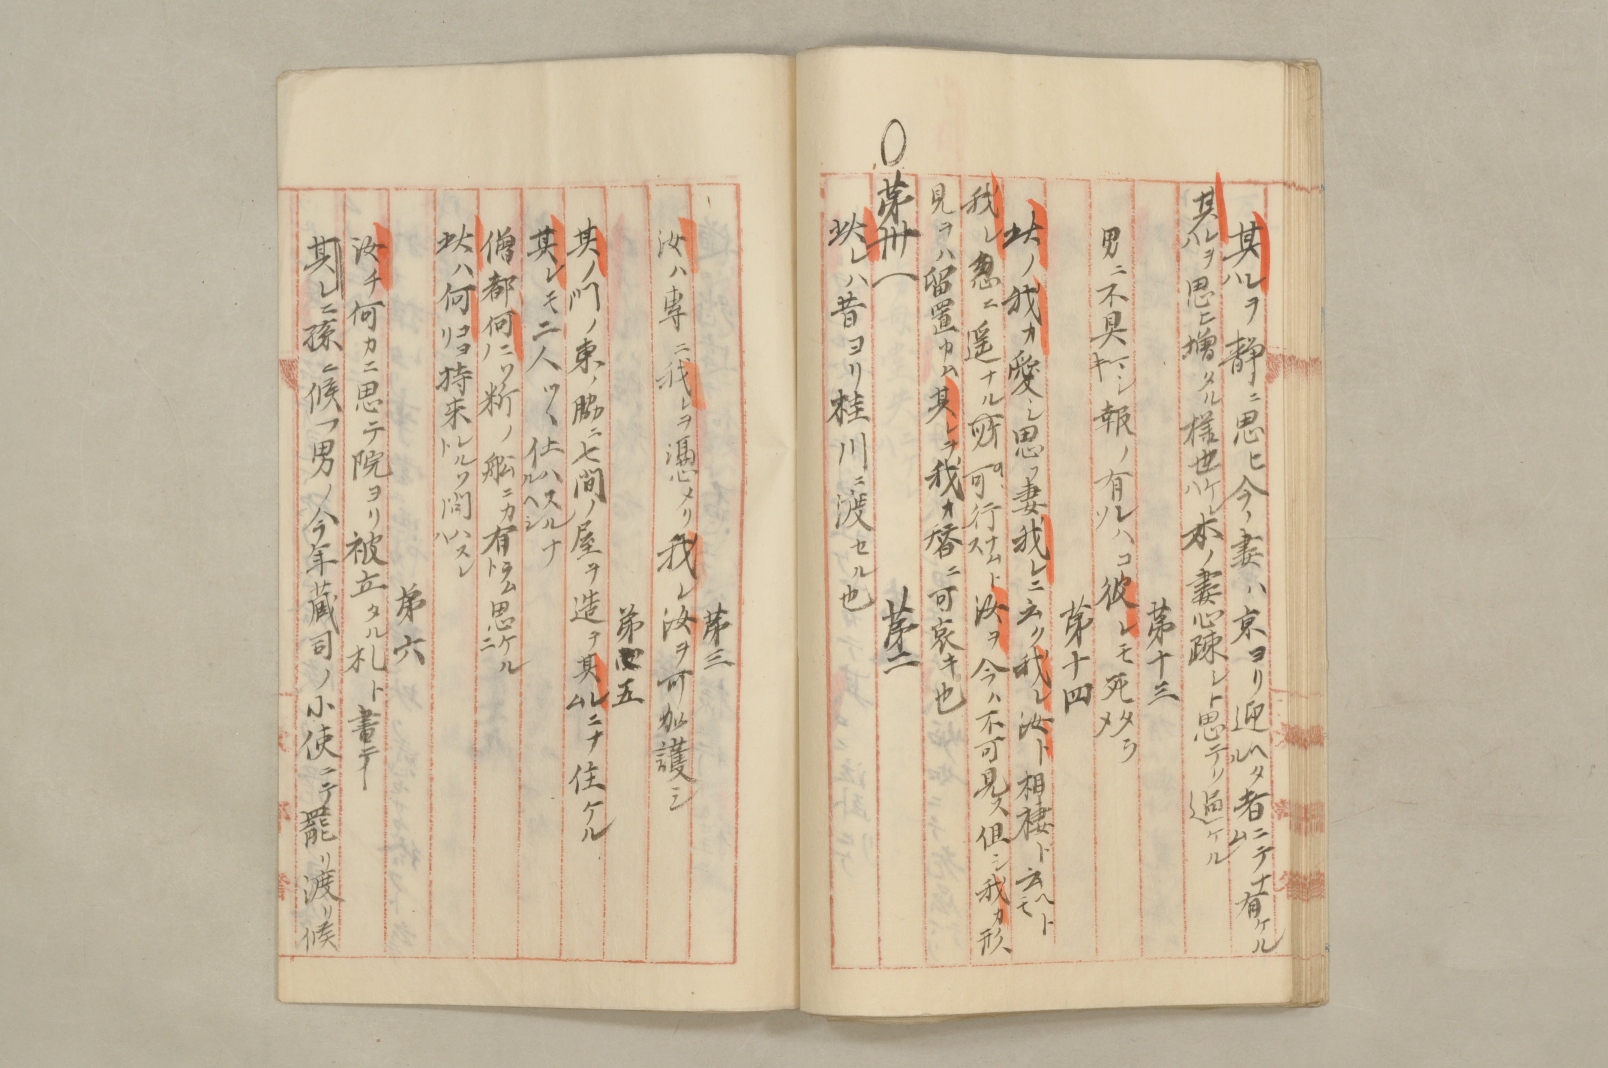 其レヲハ静ニ思ヒ今ノ妻ハ京ヨリ迎ヘタル者ニテナム有ケル
其レヲハ思ヒ増タル様也ケレハ本ノ妻心疎シト思テソ過ケル
第十三
男ニ不具キニシ報ノ有レハコソ彼レモ死タメラ
第十四
此ノ我カ愛シ思フ妻我レニ云ク我レ汝ト相棲ト云ヘトモ
我レ忽ニ遥ナル所ヘ可行ナムトス汝ヲ今ハ不可見ス但シ我カ形
見ヲハ留置カム其レヲ我カ替ニ可哀キ也
〇第卅一
第二
此レハ昔ヨリ桂川ニ渡セル也
第三
汝ハ専ニ我レヲ憑メリ我レ汝ヲ可加護シ
第五
其ノ門ノ東ノ脇ニ七間ノ屋ヲ造テ其レニナム住ケル
其レモ二人ツヽ仕ハスルナルヘシ
僧都何ニソノ粎ノ船ニカ有ラムト思ケルニ
此ハ何コヨリ持来レルソト問ハスレハ
第六
汝チ何カニ思テ院ヨリ被立タル札ト書テ
其レニ孫ニ候フ男ノ今年蔵司ノ小使ニテ罷リ渡リ候